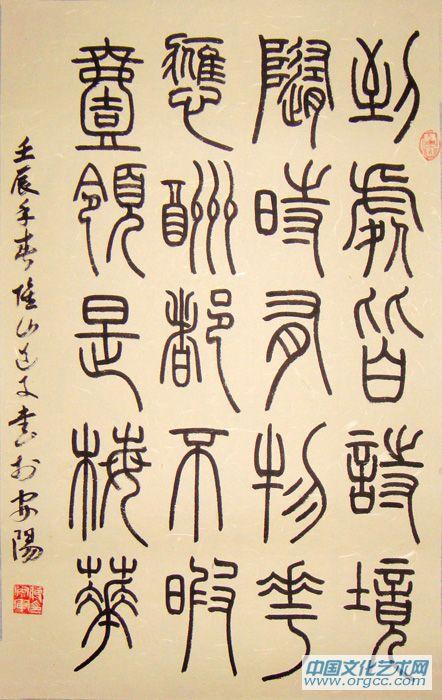 到處皆詩境
隨時有物華
應酬都不暇
壹領是梅華
壬辰年春山文書於安陽
中国文化艺术网
www.orgcc.com